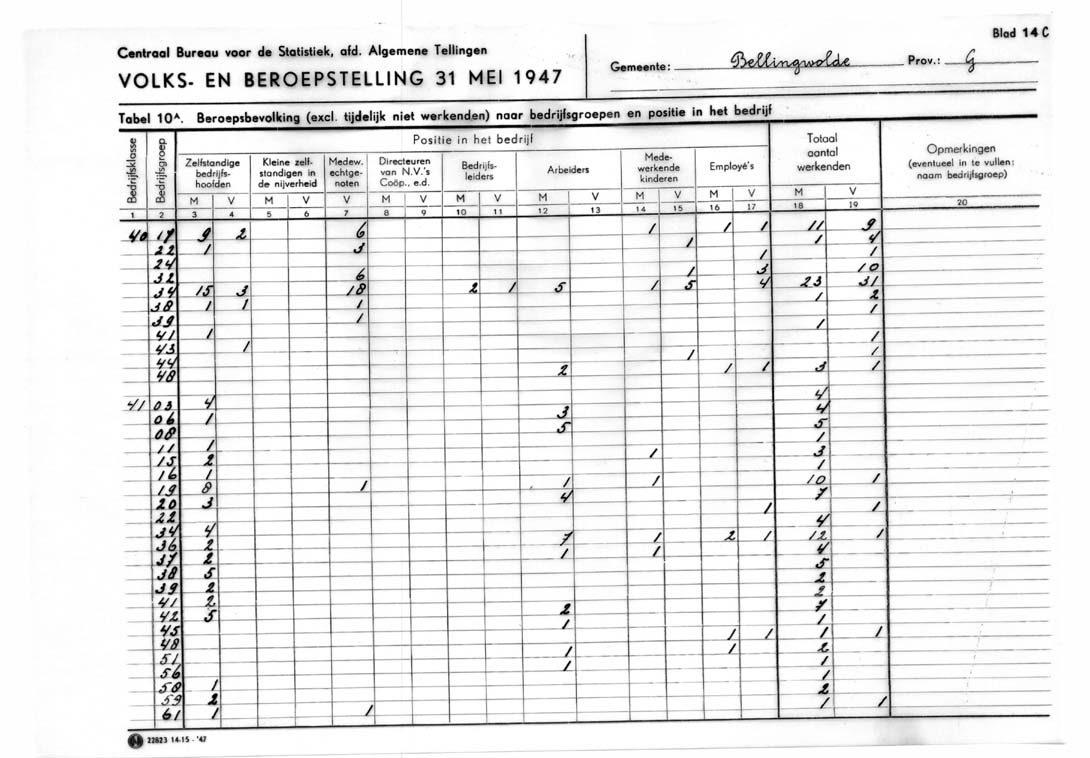 Blad 14 C
Centraal Bureau voor de Statistiek, afd. Algemene Tellingen
VOLKS- EN BEROEPSTELLING 31 MEI 1947
Gemeente: Bellingwolde Prov.: G
Tabel 10A. Beroepsbevolking (excl. tijdelijk niet werkenden) naar bedrijfsgroepen en positie in het bedrijf
Bedrijfsklasse
Bedrijfsgroep
Positie in het bedrijf
Zelfstandige bedrijfs-hoofden
Kleine zelf-standigen in de nijverheid
Medew. echtge-noten
Directeuren van N.V.'s Coöp., e.d.
Bedrijfs-leiders
Arbeiders
Mede-werkende kinderen
Employé's
Totaal aantal werkenden
Opmerkingen (eventueel in te vullen: naam bedrijfsgroep)
M V M V V M V M V M V M V M V M V
1 2 3 4 5 6 7 8 9 10 11 12 13 14 15 16 17 18 19 20
40 17 9 2 6 1 1 1 11 9
22 1 3 1 1 4
24 1 1
32 6 1 3 10
34 15 3 18 2 1 5 1 5 4 23 31
38 1 1 1 1 2
39 1 1
41 1 1
43 1 1
44 1 1
48 2 1 1 3 1
41 03 4 4
06 1 3 4
08 5 5
11 1 1
15 2 1 3
16 1 1
19 8 1 1 1 10 1
20 3 4 7
22 1 1
34 4 4
36 2 7 1 2 1 12 1
37 2 1 1 4
38 5 5
39 2 2
41 2 2
42 5 2 7
45 1 1
48 1 1 1 1
51 1 1 2
56 1 1
58 1 1
59 2 2
61 1 1 1 1
22823 14-15 - '47